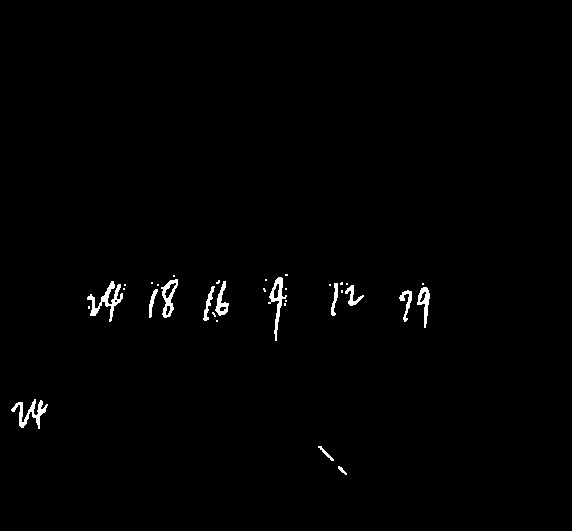 24 18 16 9 12 79
24